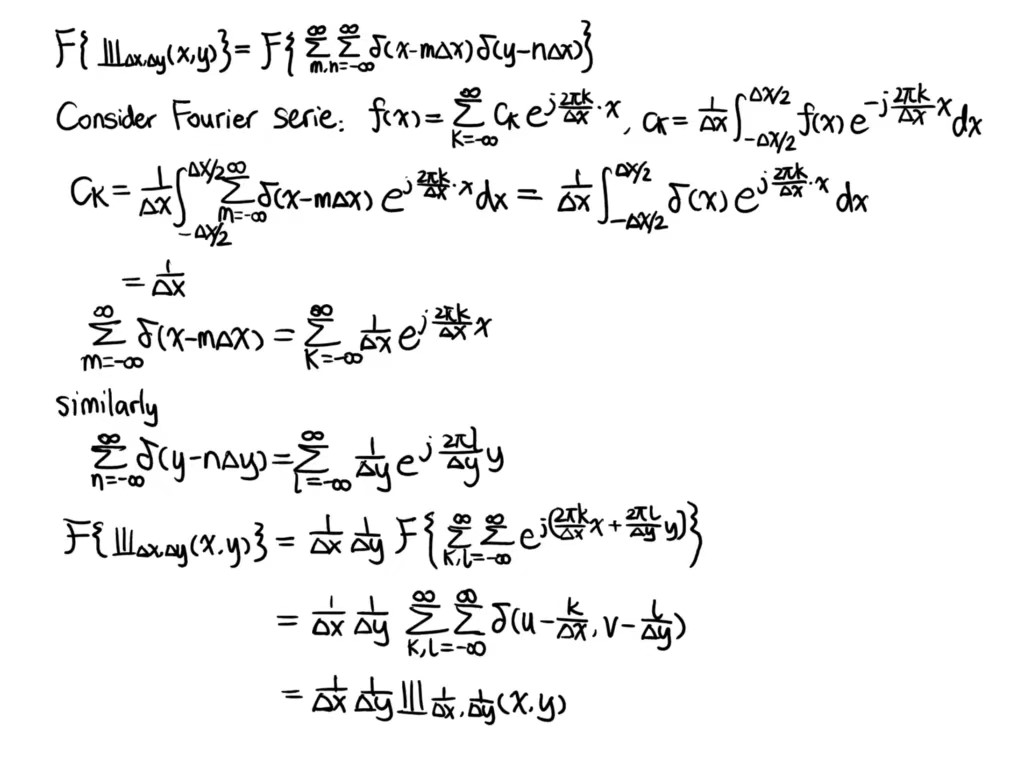 F{ Ш_{Δx,Δy}(x,y)} = F{ ∑_{m,n=-∞}^{∞} ∑^{∞} δ(x-mΔx) δ(y-nΔx)}
Consider Fourier serie: f(x) = ∑_{k=-∞}^{∞} C_k e^{j\frac{2πk}{Δx}·x}, C_k = \frac{1}{Δx} ∫_{-Δx/2}^{Δx/2} f(x) e^{-j\frac{2πk}{Δx}x} dx
C_k = \frac{1}{Δx} ∫_{-Δx/2}^{Δx/2} ∑_{m=-∞}^{∞} δ(x-mΔx) e^{j\frac{2πk}{Δx}·x} dx = \frac{1}{Δx} ∫_{-Δx/2}^{Δx/2} δ(x) e^{j\frac{2πk}{Δx}·x} dx
= \frac{1}{Δx}
∑_{m=-∞}^{∞} δ(x-mΔx) = ∑_{k=-∞}^{∞} \frac{1}{Δx} e^{j\frac{2πk}{Δx}x}
similarly
∑_{n=-∞}^{∞} δ(y-nΔy) = ∑_{l=-∞}^{∞} \frac{1}{Δy} e^{j\frac{2πl}{Δy}y}
F{Ш_{Δx,Δy}(x,y)} = \frac{1}{Δx} \frac{1}{Δy} F{ ∑_{k,l=-∞}^{∞} ∑^{∞} e^{j(\frac{2πk}{Δx}x + \frac{2πl}{Δy}y)}}
= \frac{1}{Δx} \frac{1}{Δy} ∑_{k,l=-∞}^{∞} ∑^{∞} δ(u-\frac{k}{Δx}, v-\frac{l}{Δy})
= \frac{1}{Δx} \frac{1}{Δy} Ш_{\frac{1}{Δx},\frac{1}{Δy}}(x,y)